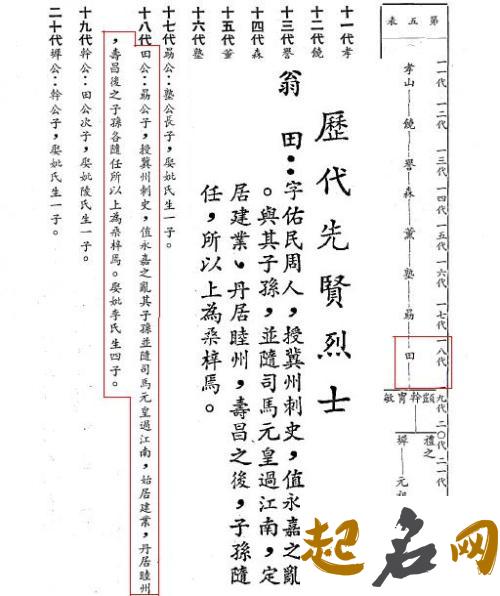 第五表
一一代 一二代 一三代 一四代 一五代 一六代 一七代 一八代 一九代 二〇代 二一代
孝山 饒 譽 森 薰 塾 易 田
顗 幹 胄 敏
禮之
墀 元
歷代先賢烈士
翁田：字佑民周人，授冀州刺史，值永嘉之亂
。與其子孫，並隨司馬元皇過江南，定
居建業、丹居睦州，壽昌之後，子孫隨
任，所以上為桑梓焉。
十一代孝
十二代饒
十三代譽
十四代森
十五代薰
十六代塾
十七代易公：塾公長子，娶妣氏生一子。
十八代田公：易公子，授冀州刺史，值永嘉之亂其子孫並隨司馬元皇過江南，始居建業，丹居睦州
，壽昌後之子孫各隨任所以上為桑梓焉。娶妣李氏生四子。
十九代幹公：田公次子，娶妣陵氏生一子。
二十代墀公：幹公子，娶妣氏生一子。
起名网